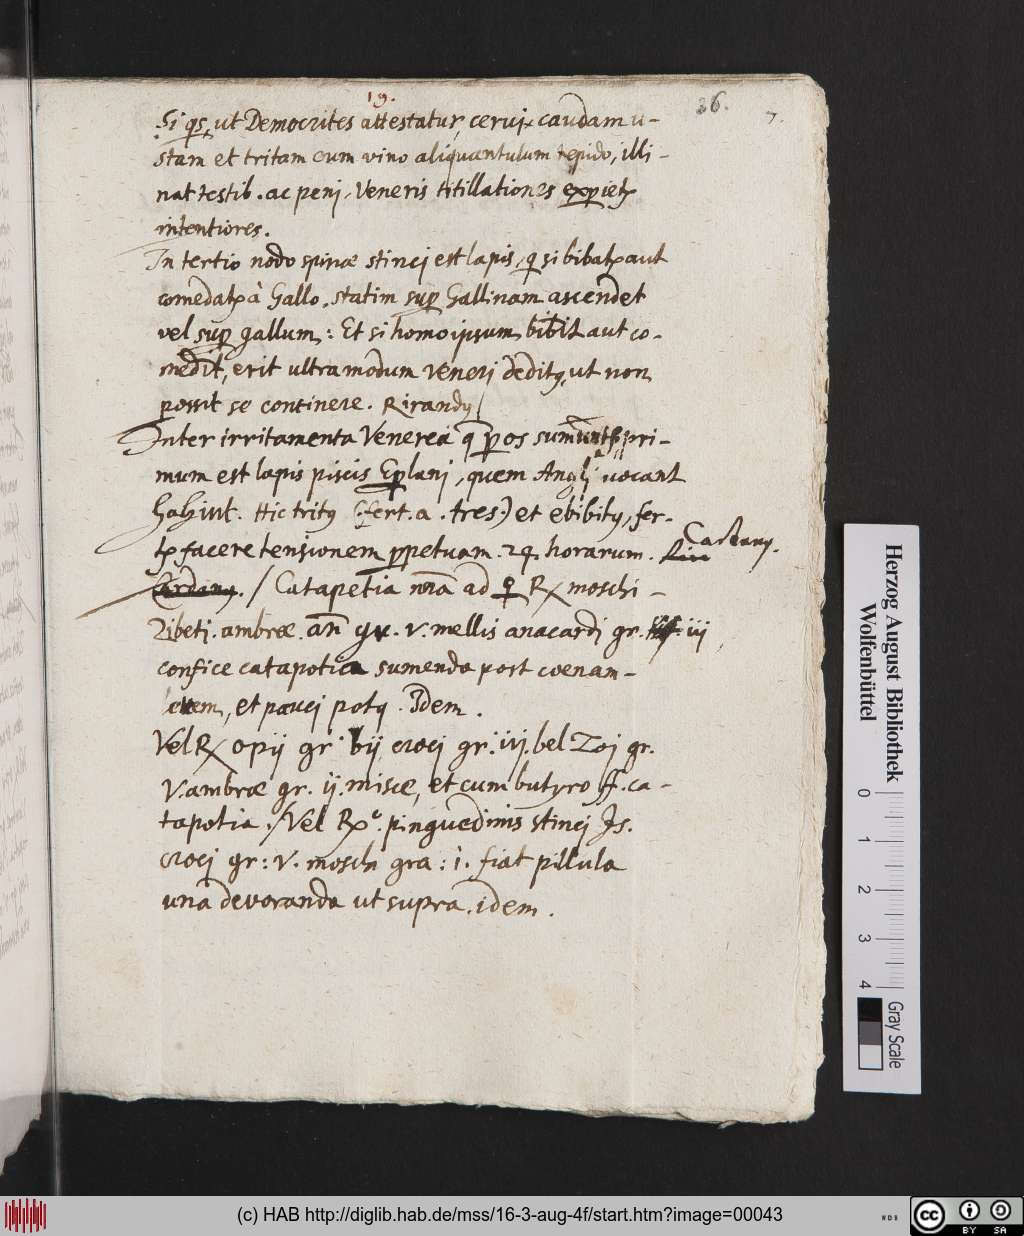 19.
26.
7.
Si qs, ut Democrites attestatur, cervi caudam u-
stam et tritam cum vino aliquantulum tepido, illi-
nat testib. ac peni, Veneris titillationes expiet
intentiores.
In tertio nodo spinæ stinci est lapis, q si bibat aut
comedat à Gallo, statim sup Gallinam ascendet
vel sup gallum: Et si homo ipsum bibit aut co-
medit, erit ultra modum Veneri dedit9, ut non
possit se continere. Rirand9
Inter irritamenta Venerea q p os sumunt pri-
mum est lapis piscis Eplani, quem Angli vocant
Hic trit9 (fert. a. tres.) et ebibit9, fer-
t facere tensionem ppetuam. 24. horarum. Cardan9.
Cardan9. / Catapotia nra ad ♀ ℞ moschi -
Zibeti. ambræ. an gr. v. mellis anacardi gr. iij
confice catapotia sumenda post coenam-
levem, et pauci pot9. Idem.
Vel ℞ opij gr. vij, croci gr. iij. bel Zoi gr.
V. ambræ gr. ij. misce, et cum butyro ff. ca-
tapotia. / Vel ℞e. pinguedinis stinci
croci gr: V. moschi gra: i. fiat pillula
una devoranda ut supra. idem.
Herzog August Bibliothek
Wolfenbüttel
0 1 2 3 4
Gray Scale
(c) HAB http://diglib.hab.de/mss/16-3-aug-4f/start.htm?image=00043
cc BY SA